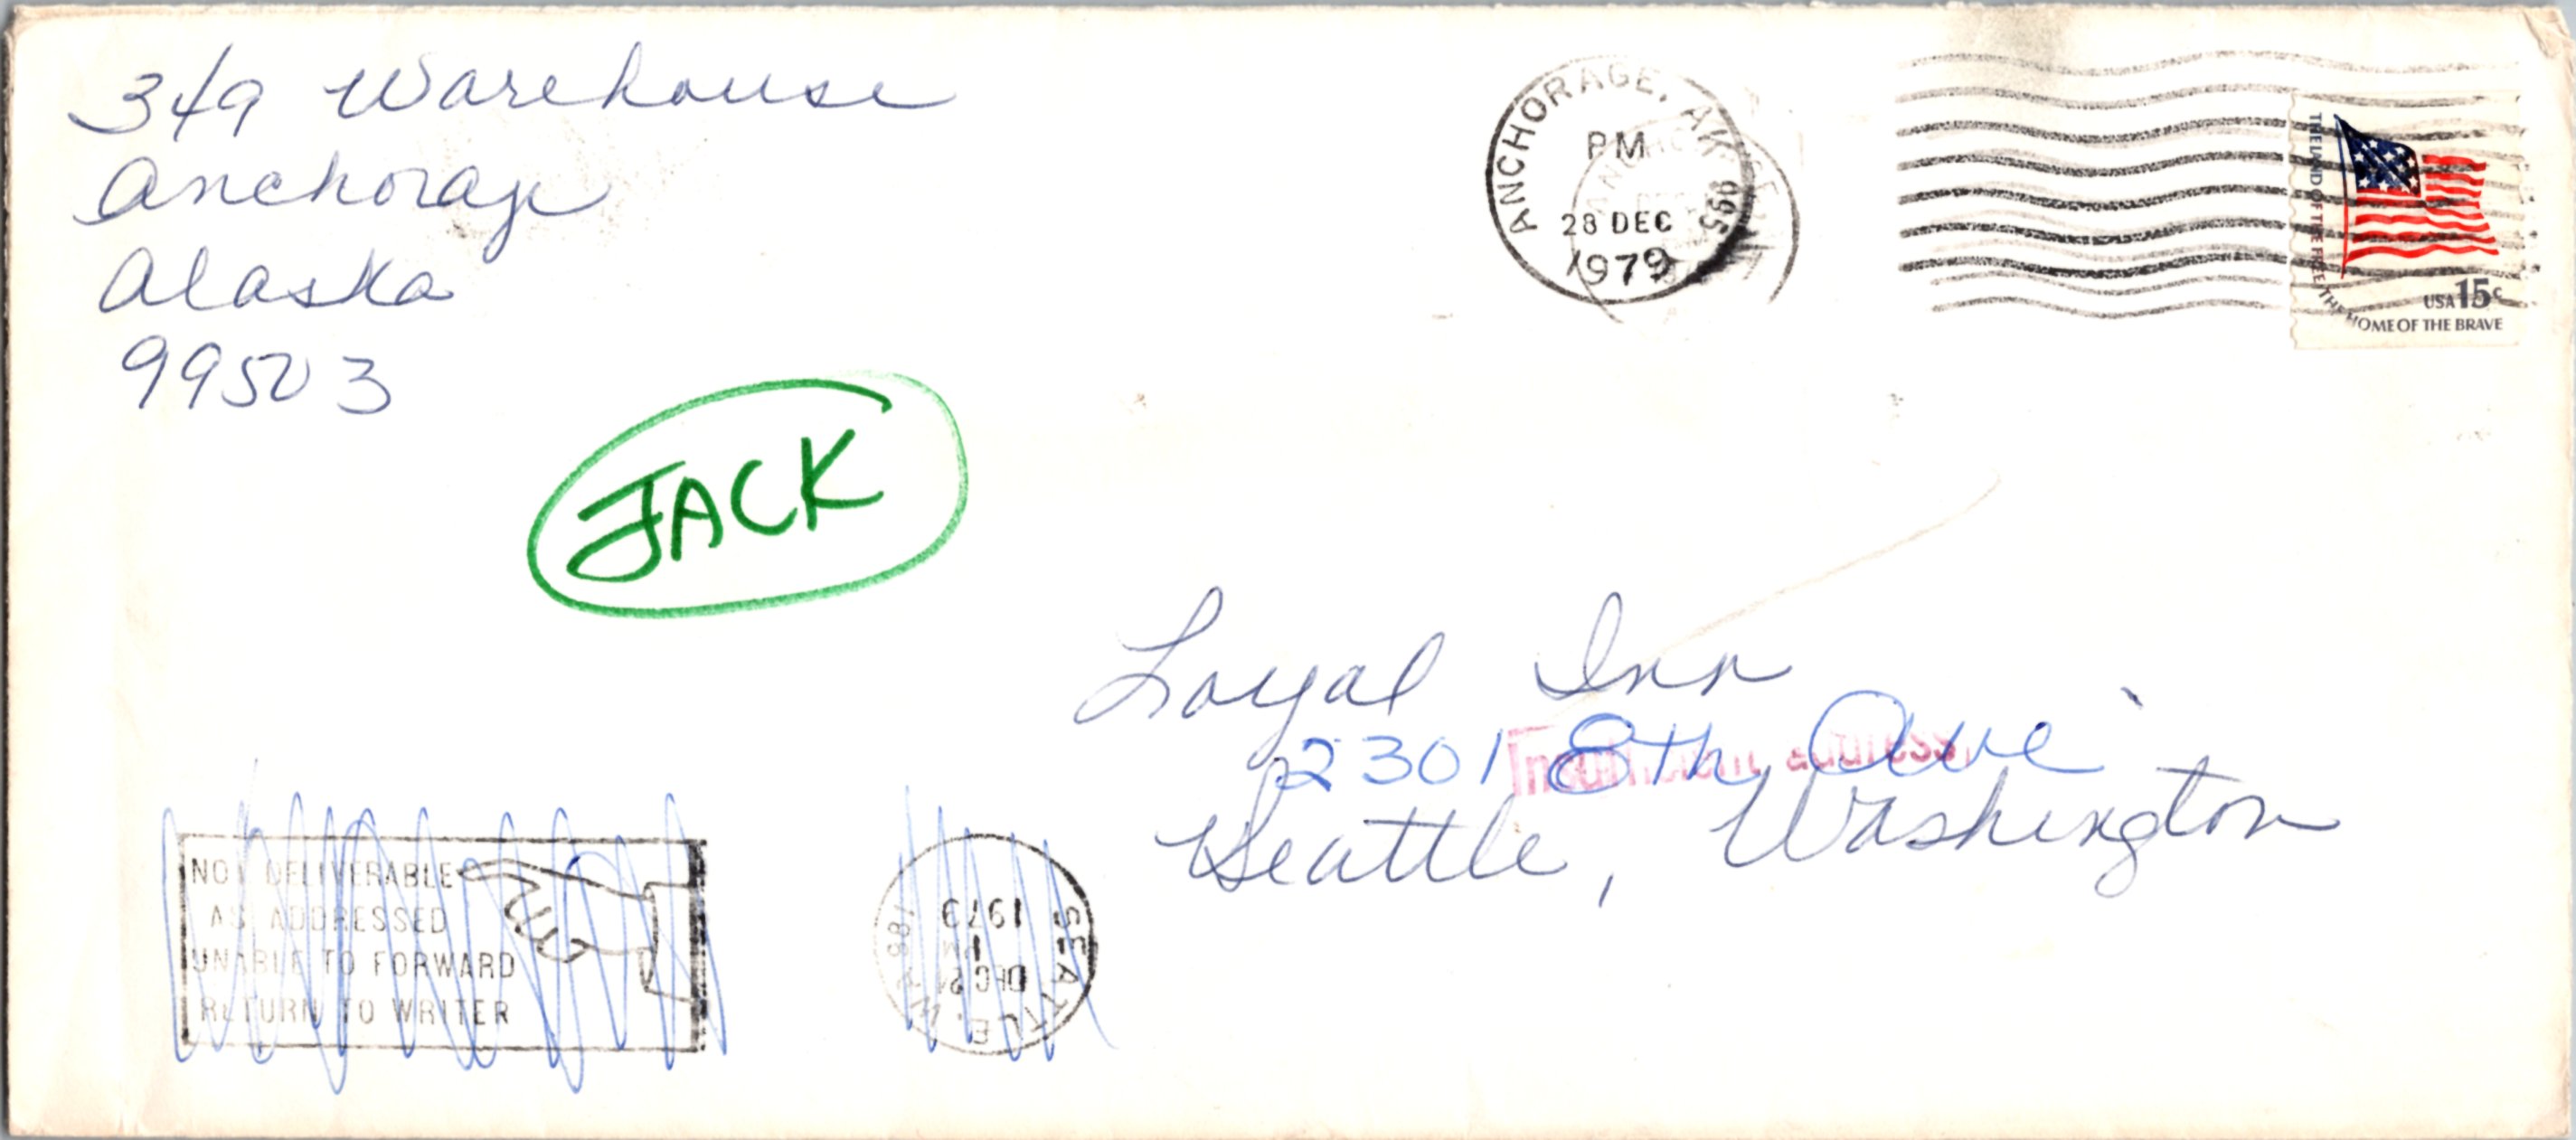 349 Warehouse
Anchorage
Alaska
99503
ANCHORAGE, AK 995
PM
28 DEC
1979
THE LAND OF THE FREE, THE HOME OF THE BRAVE
USA 15c
JACK
Loyal Inn
2301 8th Ave
Insufficient address
Seattle, Washington
NOT DELIVERABLE
AS ADDRESSED
UNABLE TO FORWARD
RETURN TO WRITER
SEATTLE, WA 981
PM
1979